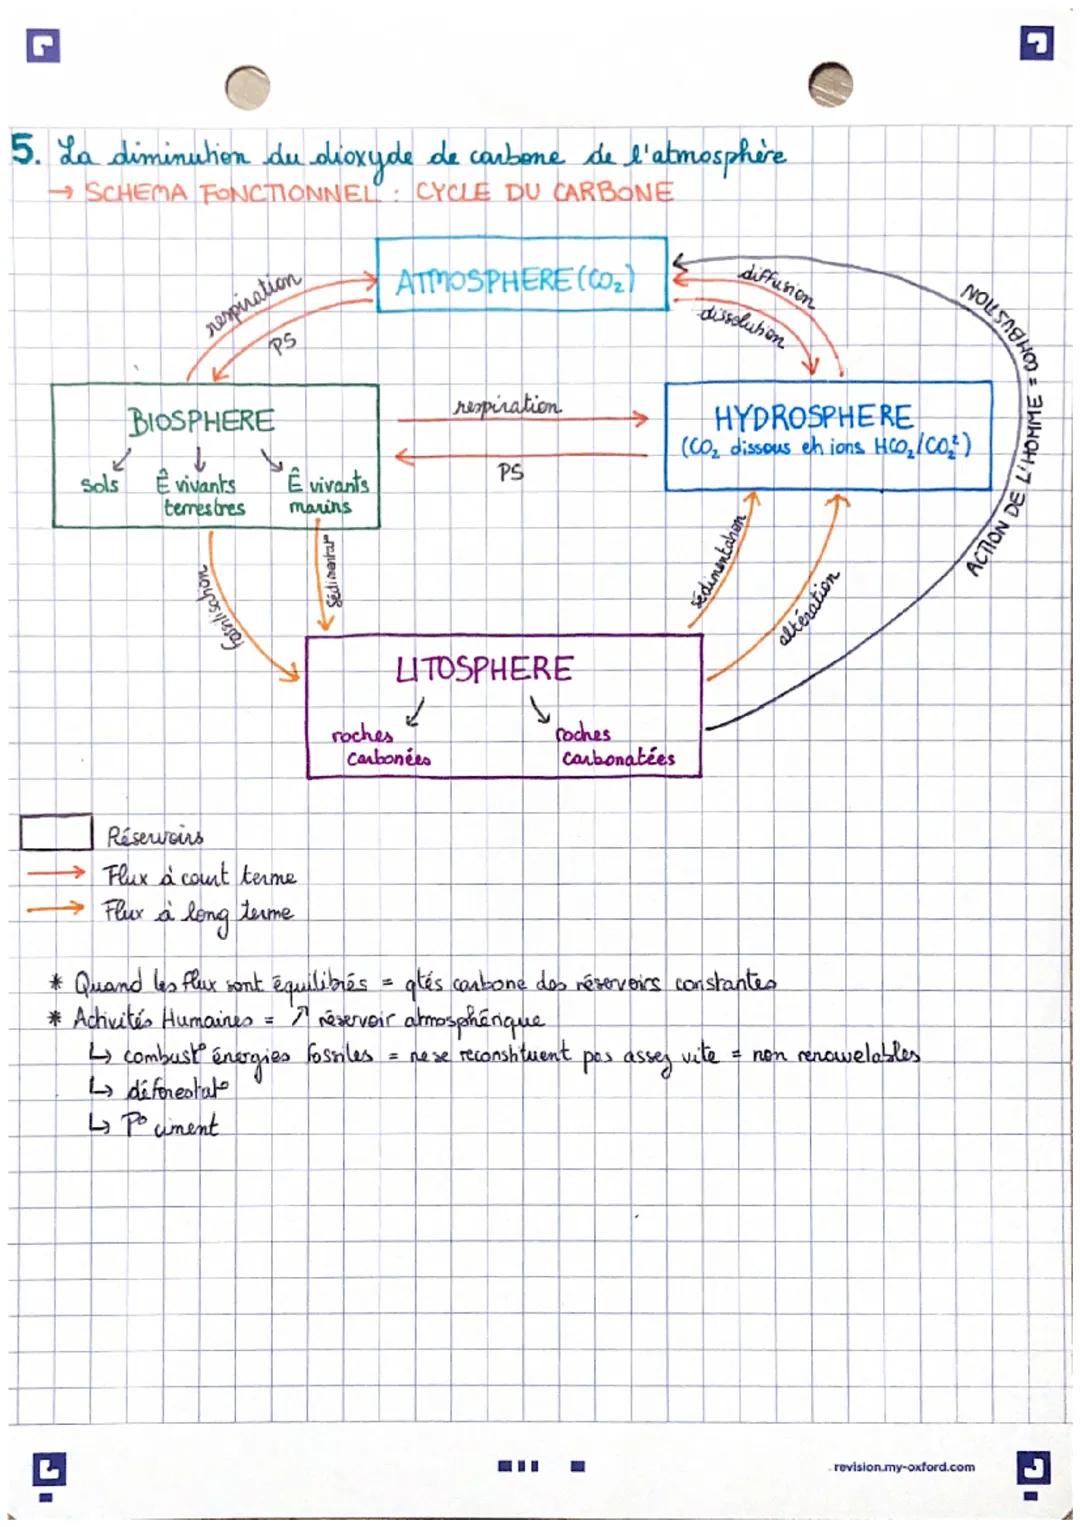 5. La diminution du dioxyde de carbone de l'atmosphère
→ SCHEMA FONCTIONNEL : CYCLE DU CARBONE
ATMOSPHERE (CO₂)
respiration
PS
diffusion
dissolution
ACTION DE L'HOMME = COMBUSTION
BIOSPHERE
sols
Ê vivants terrestres
Ê vivants marins
respiration
PS
HYDROSPHERE
(CO₂ dissous eh ions HCO₂/CO₂²⁻)
fossilisation
Sédimentat°
sédimentation
altération
LITOSPHERE
roches carbonées
roches carbonatées
Réservoirs
→ Flux à court terme
→ Flux à long terme
* Quand les flux sont équilibrés = qtés carbone des réservoirs constantes
* Activités Humaines = ↗ réservoir atmosphérique
↳ combust° énergies fossiles = ne se reconstituent pas assez vite = non renouvelables
↳ déforestat°
↳ P° ciment
revision.my-oxford.com